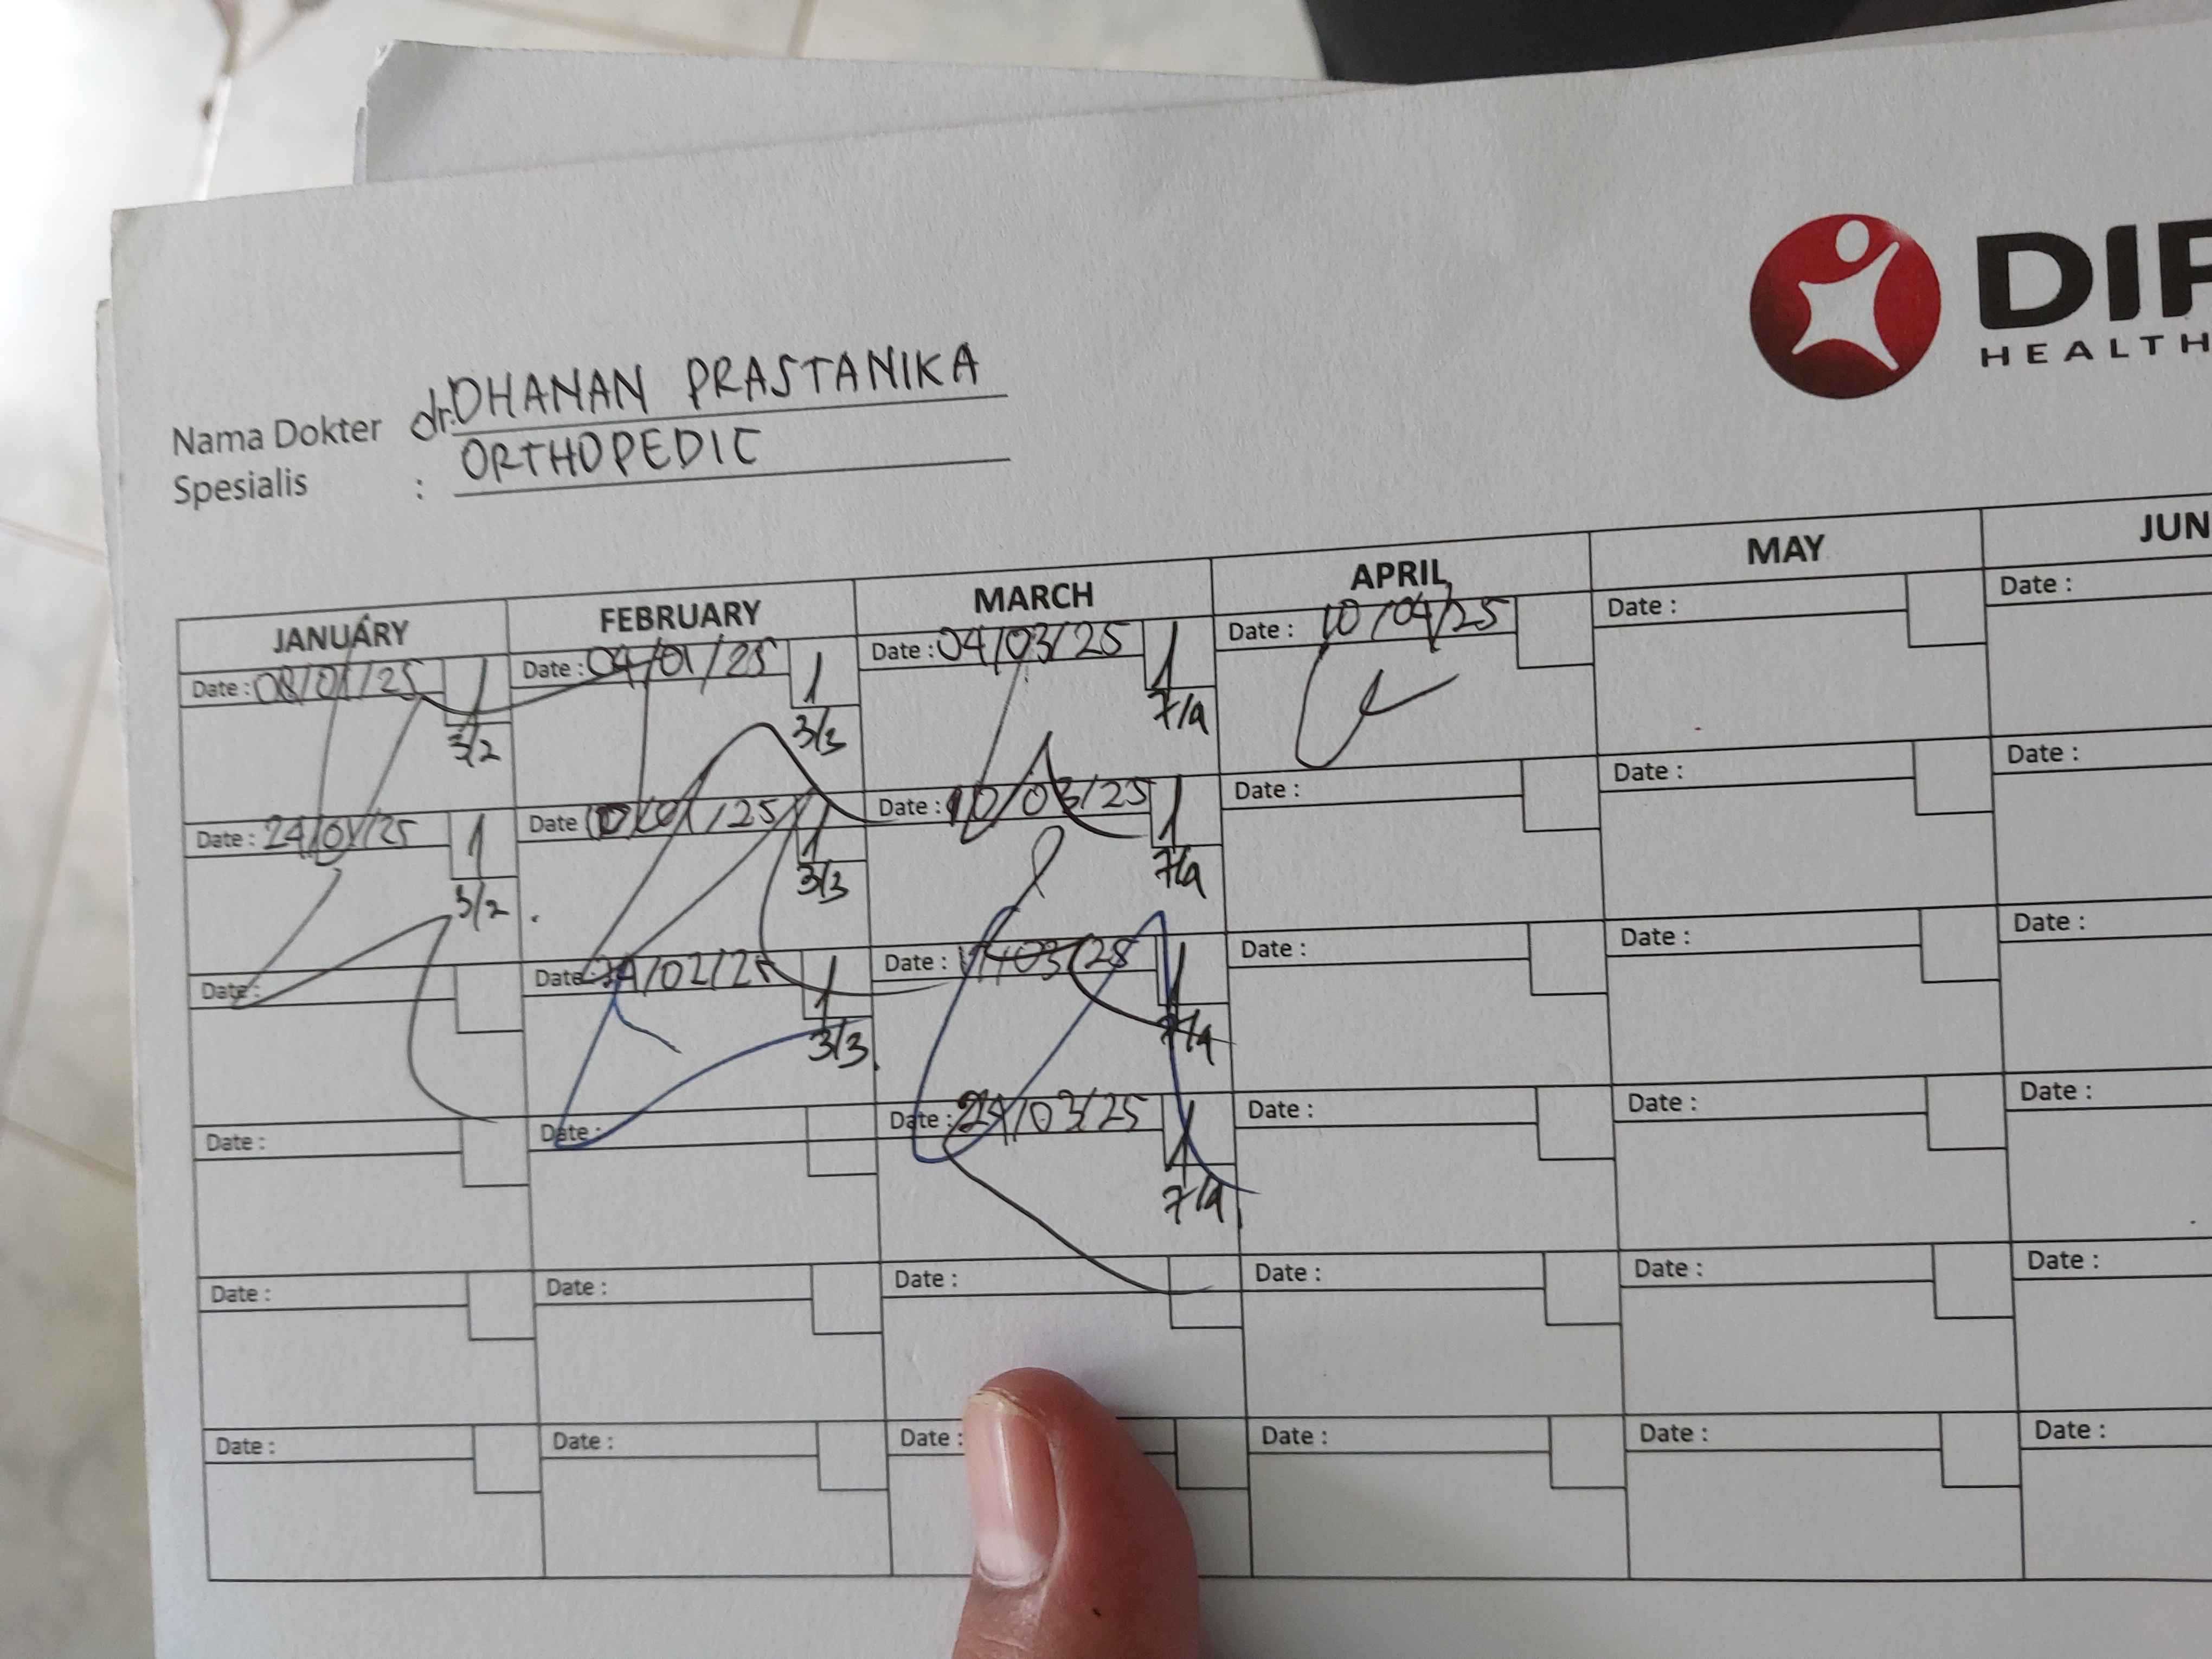 DIP
HEALTH
Nama Dokter dr. DHANAN PRASTANIKA
Spesialis : ORTHOPEDIC
JANUARY FEBRUARY MARCH APRIL MAY JUN
Date : 08/01/25 Date : 04/01/25 Date : 04/03/25 Date : 10/04/25 Date : Date :
3/2 3/3 7/4
Date : 24/01/25 Date 10/01/25 Date : 10/03/25 Date : Date : Date :
3/2 3/3 7/4
Date : Date : 24/02/25 Date : Date : Date : Date :
3/3 7/4
Date : Date : Date : 24/03/25 Date : Date : Date :
7/4
Date : Date : Date : Date : Date : Date :
Date : Date : Date : Date : Date : Date :